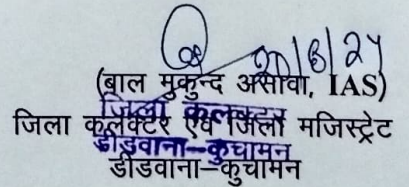 20/6/24
(बाल मुकुन्द असावा, IAS)
जिला कलक्टर
जिला कलेक्टर एवं जिला मजिस्ट्रेट
डीडवाना-कुचामन
डीडवाना-कुचामन